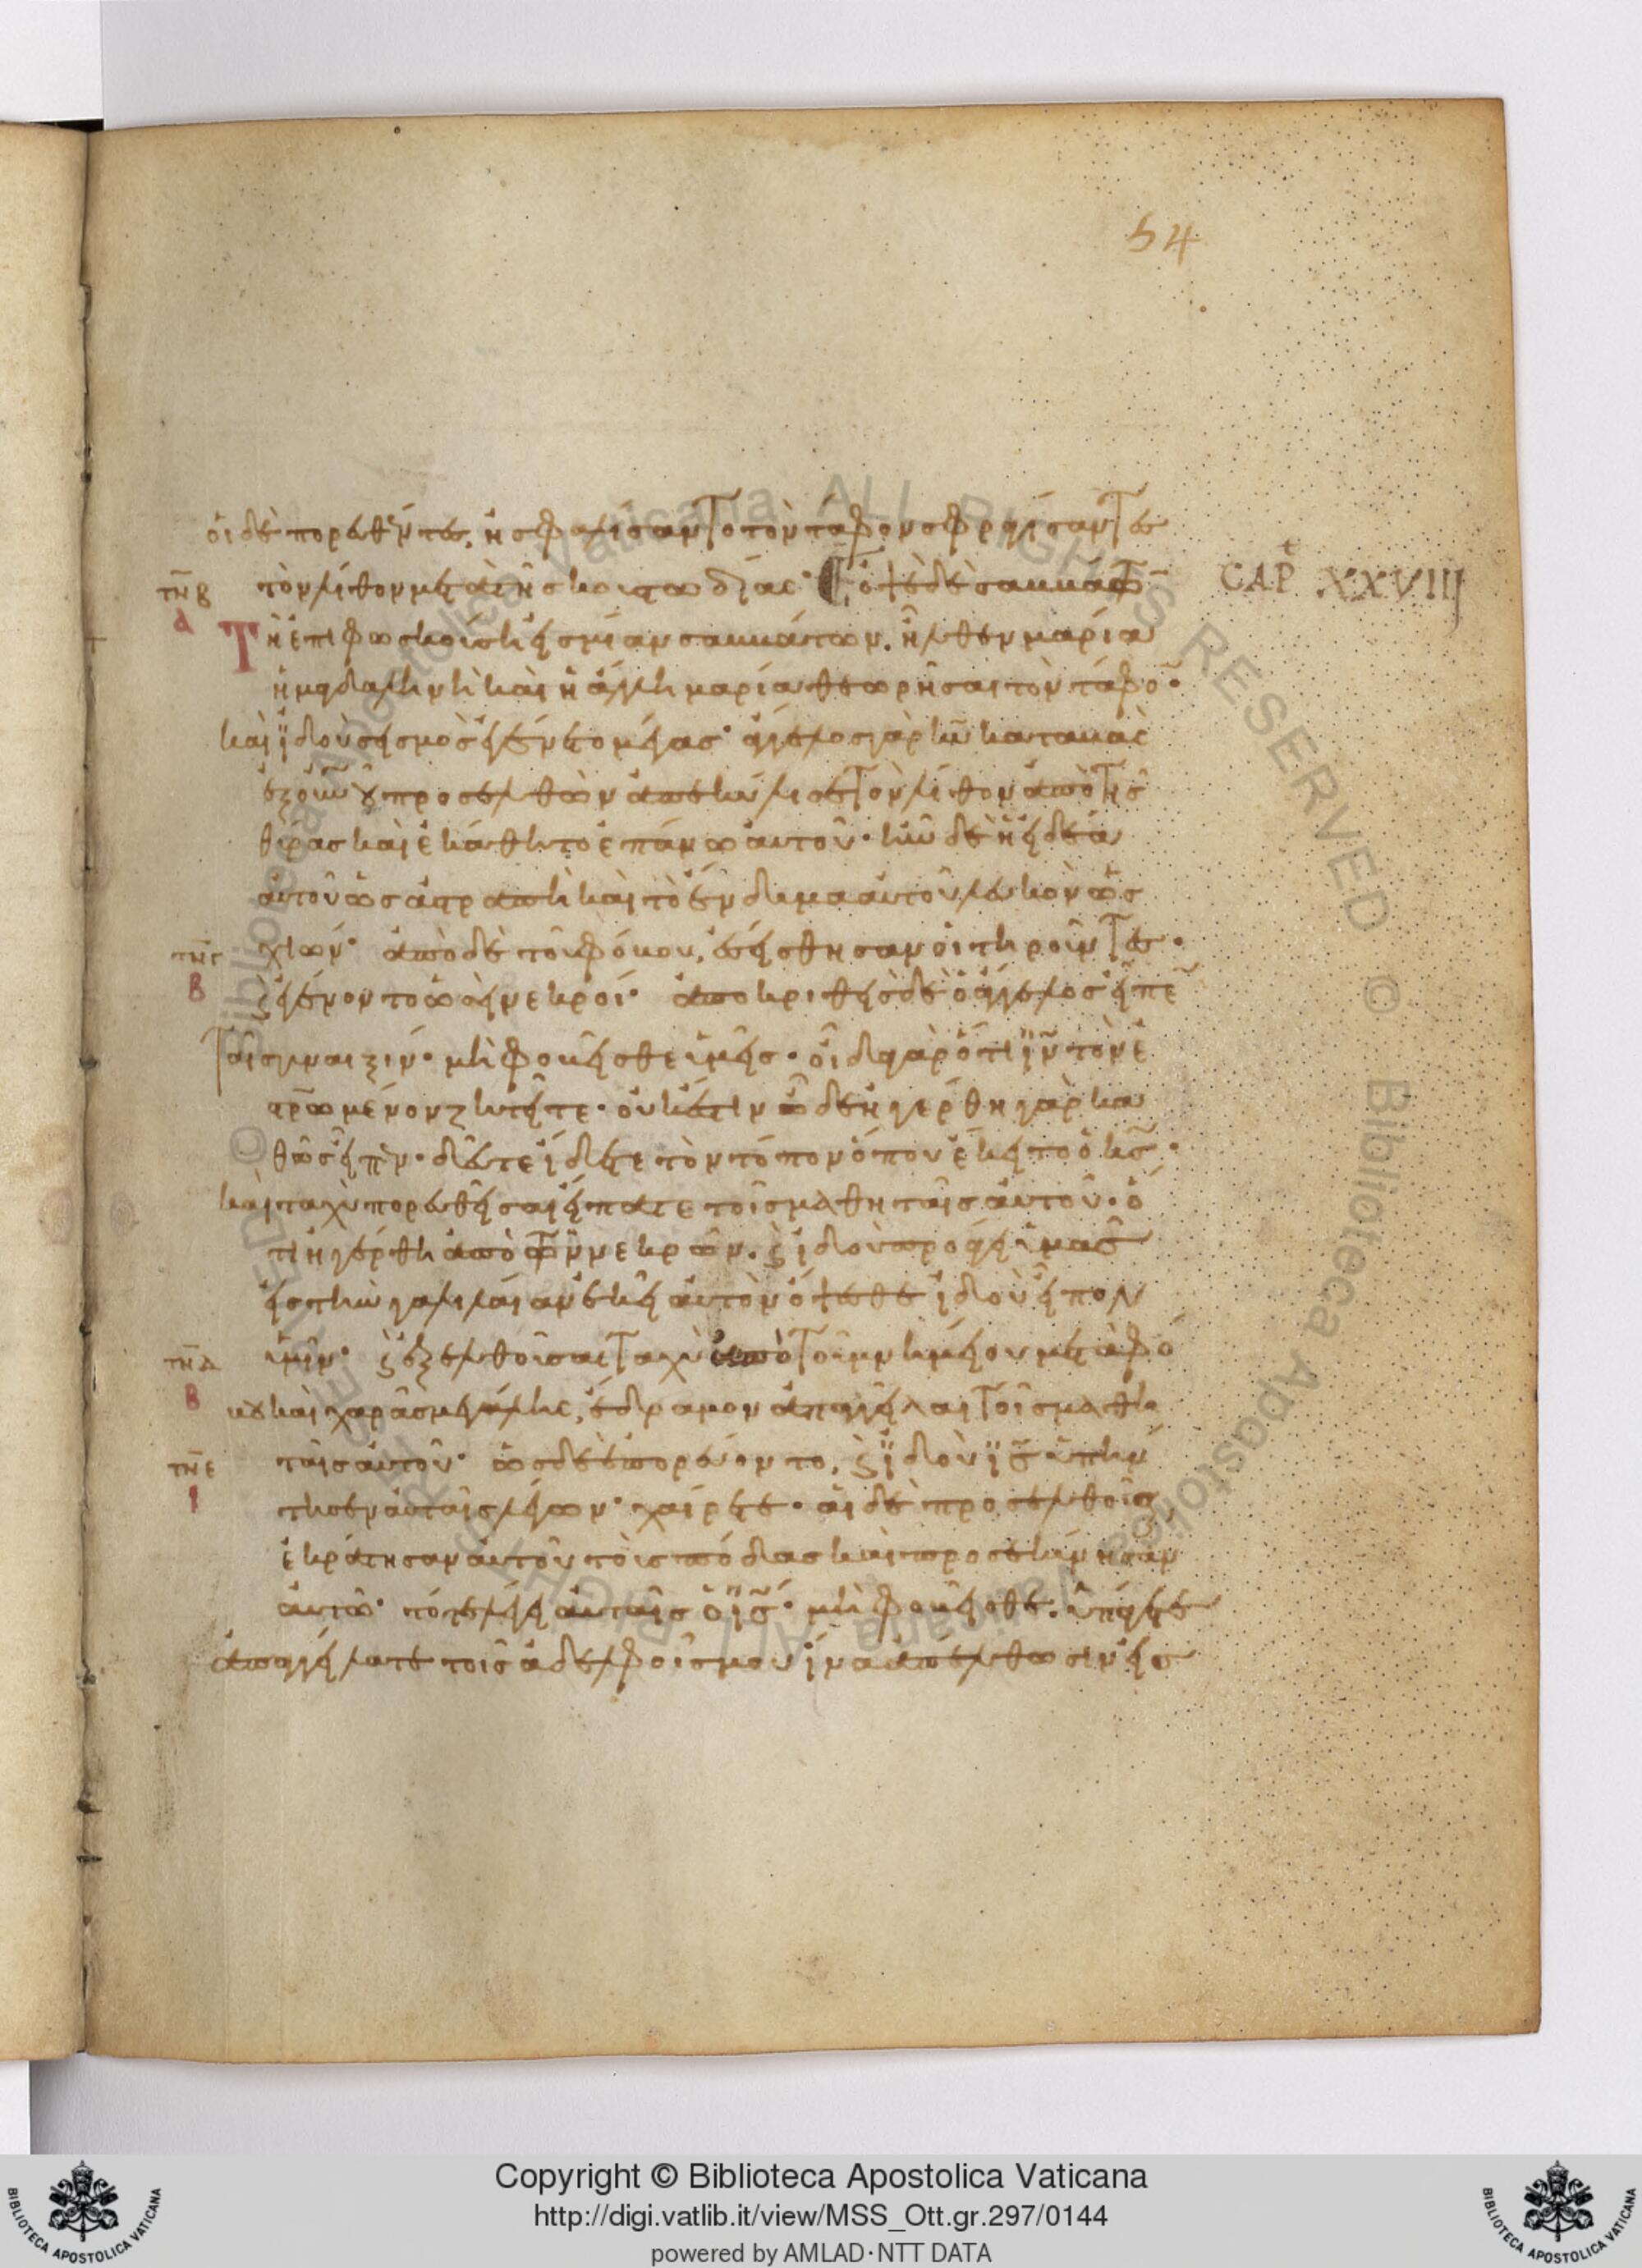 54
οἱ δὲ πορευθέντες, ἠσφαλίσαντο τὸν τάφον σφραγίσαντες
τὸν λίθον μετὰ τῆς κουστωδίας· Ὀψὲ δὲ σαββάτων
CAP XXVIII
τνβ
α
Τῆ ἐπιφωσκούση εἰς μίαν σαββάτων. ἦλθεν μαρία
ἡ μαγδαληνὴ καὶ ἡ ἄλλη μαρία θεωρῆσαι τὸν τάφον·
καὶ ἰδοὺ σεισμὸς ἐγένετο μέγας· ἄγγελος γὰρ κυ καταβὰς
ἐξ οὐνου προσελθὼν ἀπεκύλισε τὸν λίθον ἀπὸ τῆς
θύρας καὶ ἐκάθητο ἐπάνω αὐτοῦ· ἦν δὲ ἡ εἰδέα
αὐτοῦ ὡς ἀστραπὴ καὶ τὸ ἔνδυμα αὐτοῦ λευκὸν ὡς
τνγ
β
χιών· ἀπὸ δὲ τοῦ φόβου, ἐσείσθησαν οἱ τηροῦντες·
καὶ ἐγένοντο ὡσεὶ νεκροί· ἀποκριθεὶς δὲ ὁ ἄγγελος εἶπε
ταῖς γυναιξίν· μὴ φοβεῖσθε ὑμεῖς· οἶδα γὰρ ὅτι ιν τὸν ἐ
στρωμένον ζητεῖτε· οὐκ ἔστιν ὧδε ἠγέρθη γὰρ κα
θὼς εἶπεν· δεῦτε ἴδετε τὸν τόπον ὅπου ἔκειτο ὁ κς·
καὶ ταχὺ πορευθεῖσαι εἴπατε τοῖς μαθηταῖς αὐτοῦ· ὅ
τι ἠγέρθη ἀπὸ τῶν νεκρῶν. καὶ ἰδοὺ προάγει ὑμᾶς
εἰς τὴν γαλιλαίαν ἐκεῖ αὐτὸν ὄψεσθε ἰδοὺ εἶπον
τνδ
β
ὑμῖν· καὶ ἐξελθοῦσαι ταχὺ ἀπὸ τοῦ μνημείου μετὰ φό
βου καὶ χαρᾶς μεγάλης, ἔδραμον ἀπαγγεῖλαι τοῖς μαθη
τνε
ι
ταῖς αὐτοῦ· ὡς δὲ ἐπορεύοντο, καὶ ἰδοὺ ις ὑπήν
τησεν αὐταῖς λέγων· χαίρετε· αἱ δὲ προσελθοῦσαι
ἐκράτησαν αὐτοῦ τοὺς πόδας καὶ προσεκύνησαν
αὐτῶ· τότε λέγει αὐταῖς ὁ ις· μὴ φοβεῖσθε. ὑπάγετε
ἀπαγγείλατε τοῖς ἀδελφοῖς μου ἵνα ἀπέλθωσιν εἰς
Copyright © Biblioteca Apostolica Vaticana
http://digi.vatlib.it/view/MSS_Ott.gr.297/0144
powered by AMLAD·NTT DATA
BIBLIOTECA APOSTOLICA VATICANA
BIBLIOTECA APOSTOLICA VATICANA